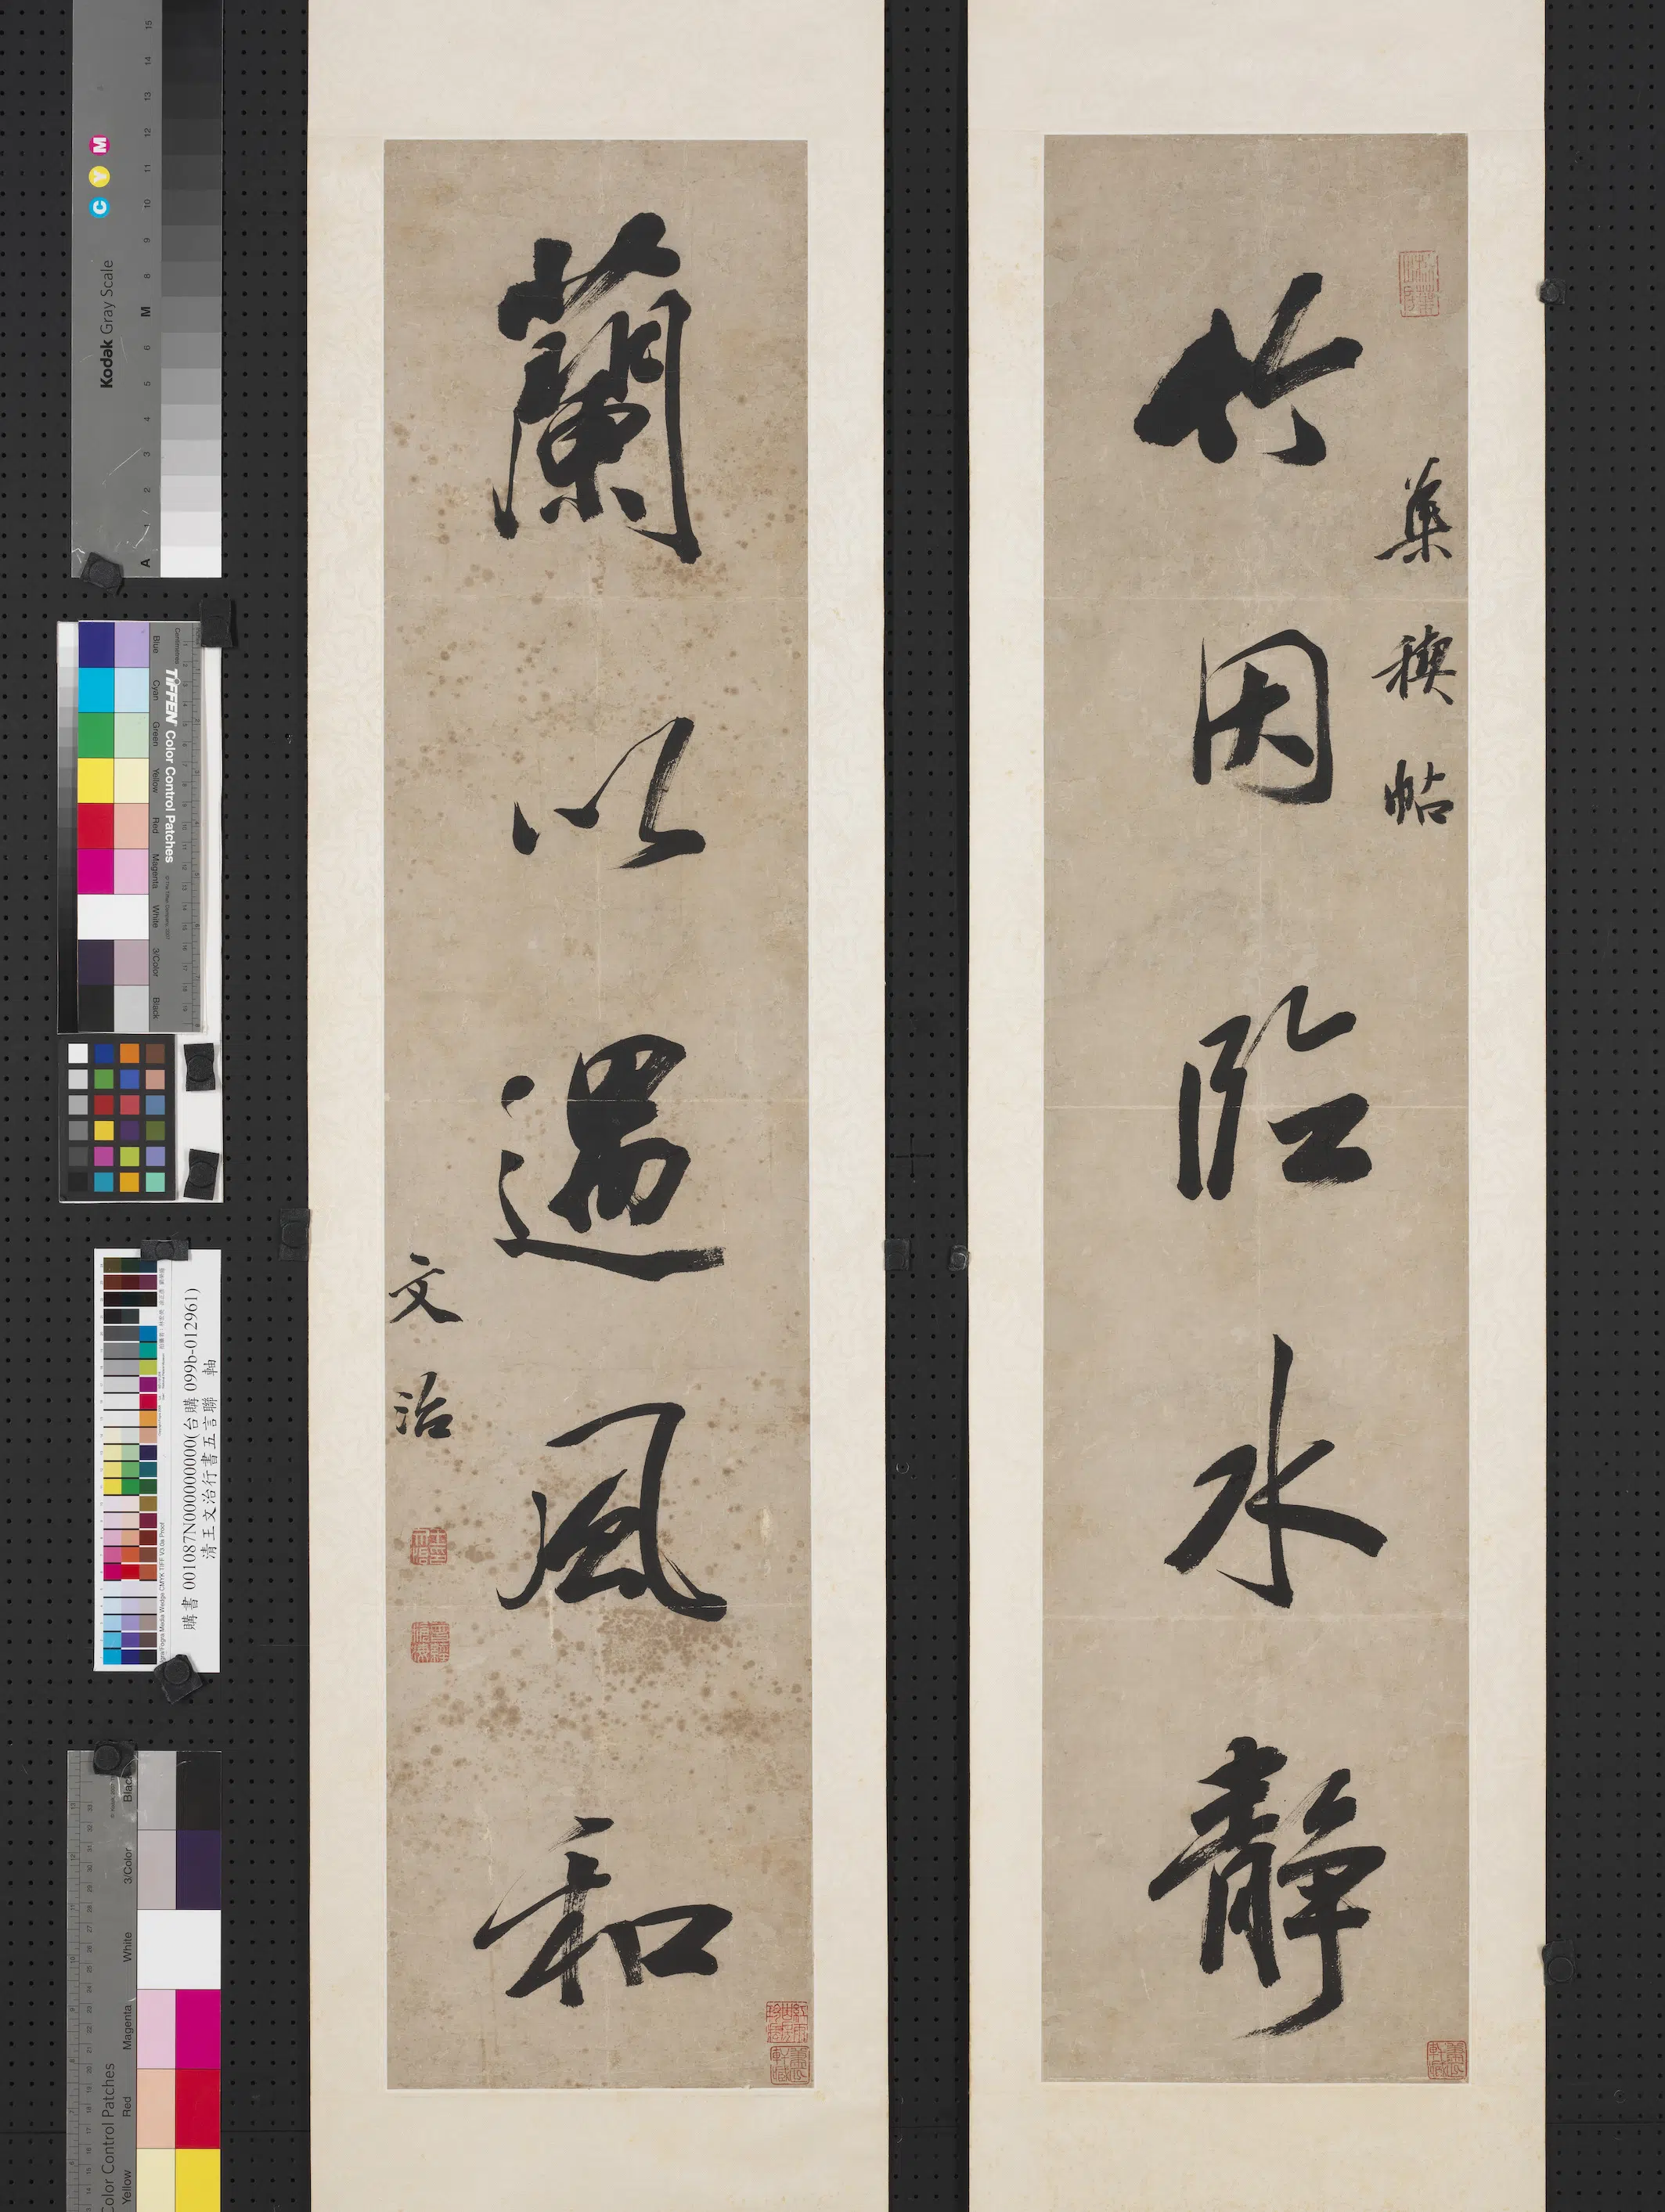 集禊帖
竹因臨水靜
蘭以遇風和
文治
Kodak Gray Scale
C Y M
A 1 2 3 4 5 6 M 8 9 10 11 12 13 14 15
TIFFEN Color Control Patches
Blue Cyan Green Yellow Red Magenta White 3/Color Black
購書 001087N000000000(台購 099b-012961)
清王文治行書五言聯 軸
Color Control Patches
Black 3/Color White Magenta Red Yellow